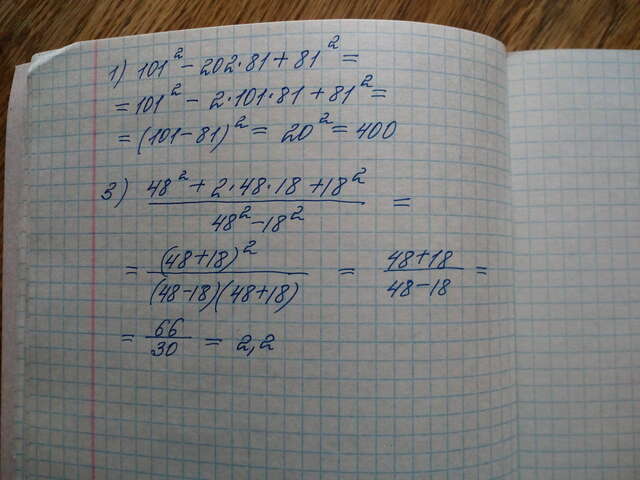 1) 101² - 202·81 + 81² =
= 101² - 2·101·81 + 81² =
= (101-81)² = 20² = 400
3) 48² + 2·48·18 + 18² =
48² - 18²
= (48+18)² = 48+18 =
(48-18)(48+18) 48-18
= 66 = 2,2
30